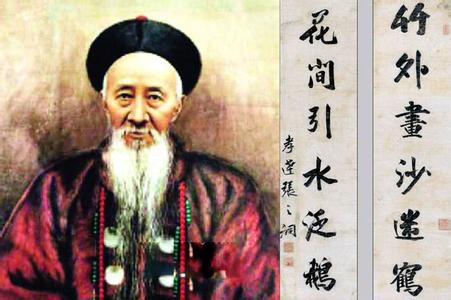 竹外畫沙鶴
花間引水泛鵝
孝達張之洞